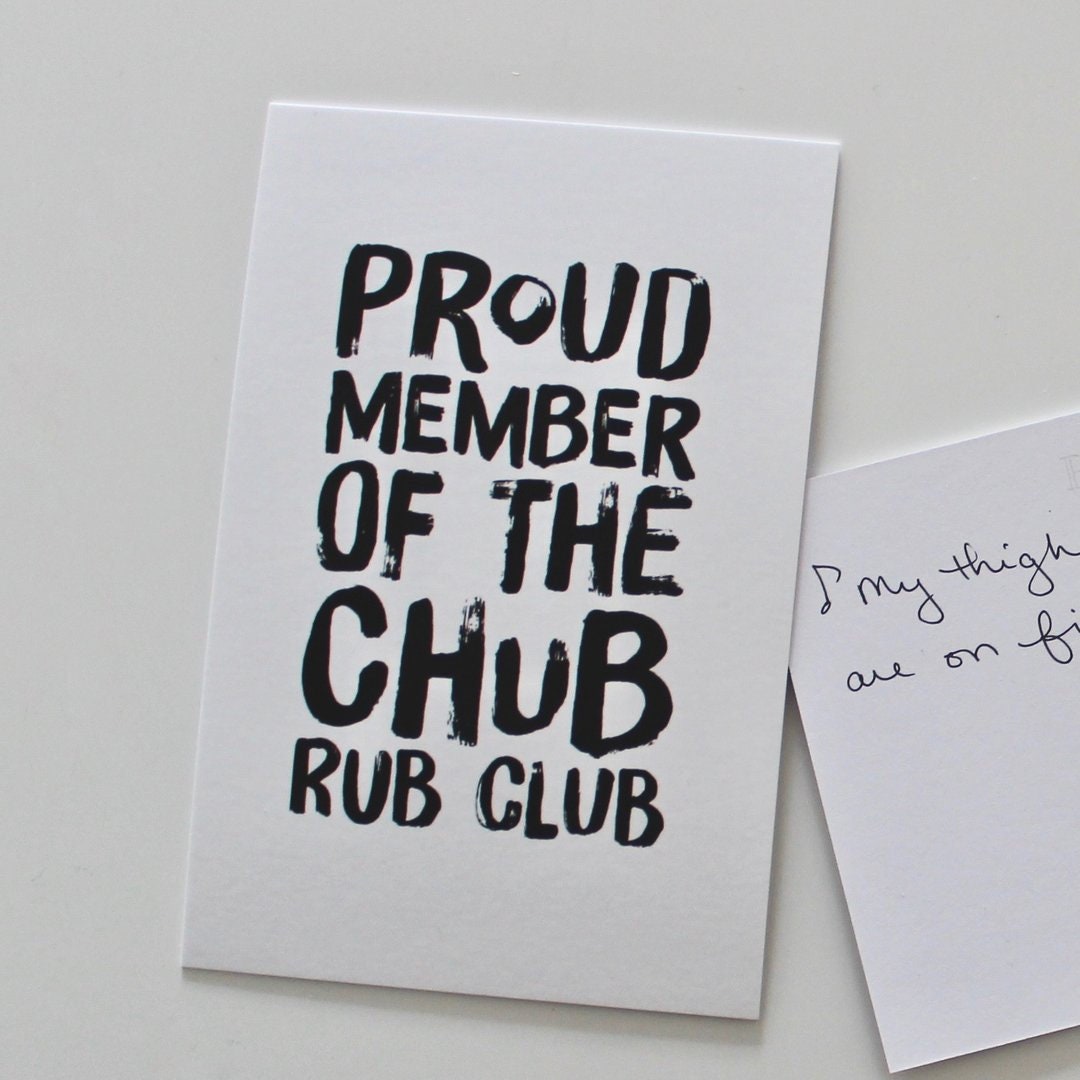 PROUD
MEMBER
OF THE
CHUB
RUB CLUB
♪ My thigh
are on fi